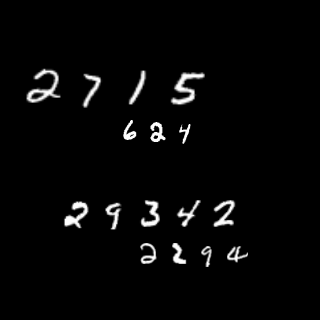 2715
624
29342
2294